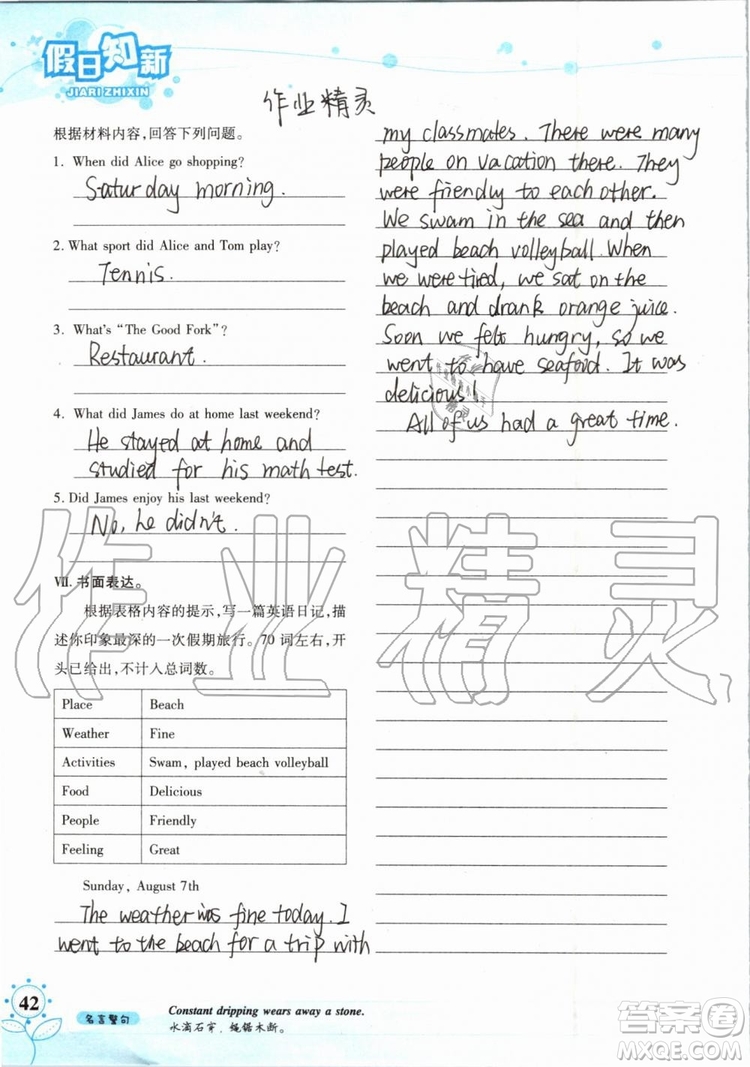 假日知新
JIARI ZHIXIN
作业精灵
根据材料内容,回答下列问题。
1. When did Alice go shopping?
Saturday morning.
2. What sport did Alice and Tom play?
Tennis.
3. What's "The Good Fork"?
Restaurant.
4. What did James do at home last weekend?
He stayed at home and
studied for his math test.
5. Did James enjoy his last weekend?
No, he didn't.
Ⅶ. 书面表达。
根据表格内容的提示,写一篇英语日记,描
述你印象最深的一次假期旅行。70 词左右,开
头已给出,不计入总词数。
Place Beach
Weather Fine
Activities Swam, played beach volleyball
Food Delicious
People Friendly
Feeling Great
Sunday, August 7th
The weather was fine today. I
went to the beach for a trip with
my classmates. There were many
people on vacation there. They
were friendly to each other.
We swam in the sea and then
played beach volleyball. When
we were tired, we sat on the
beach and drank orange juice.
Soon we felt hungry, so we
went to have seafood. It was
delicious!
All of us had a great time.
作业精灵
42
名言警句
Constant dripping wears away a stone.
水滴石穿,绳锯木断。
答案圈
MXQE.COM